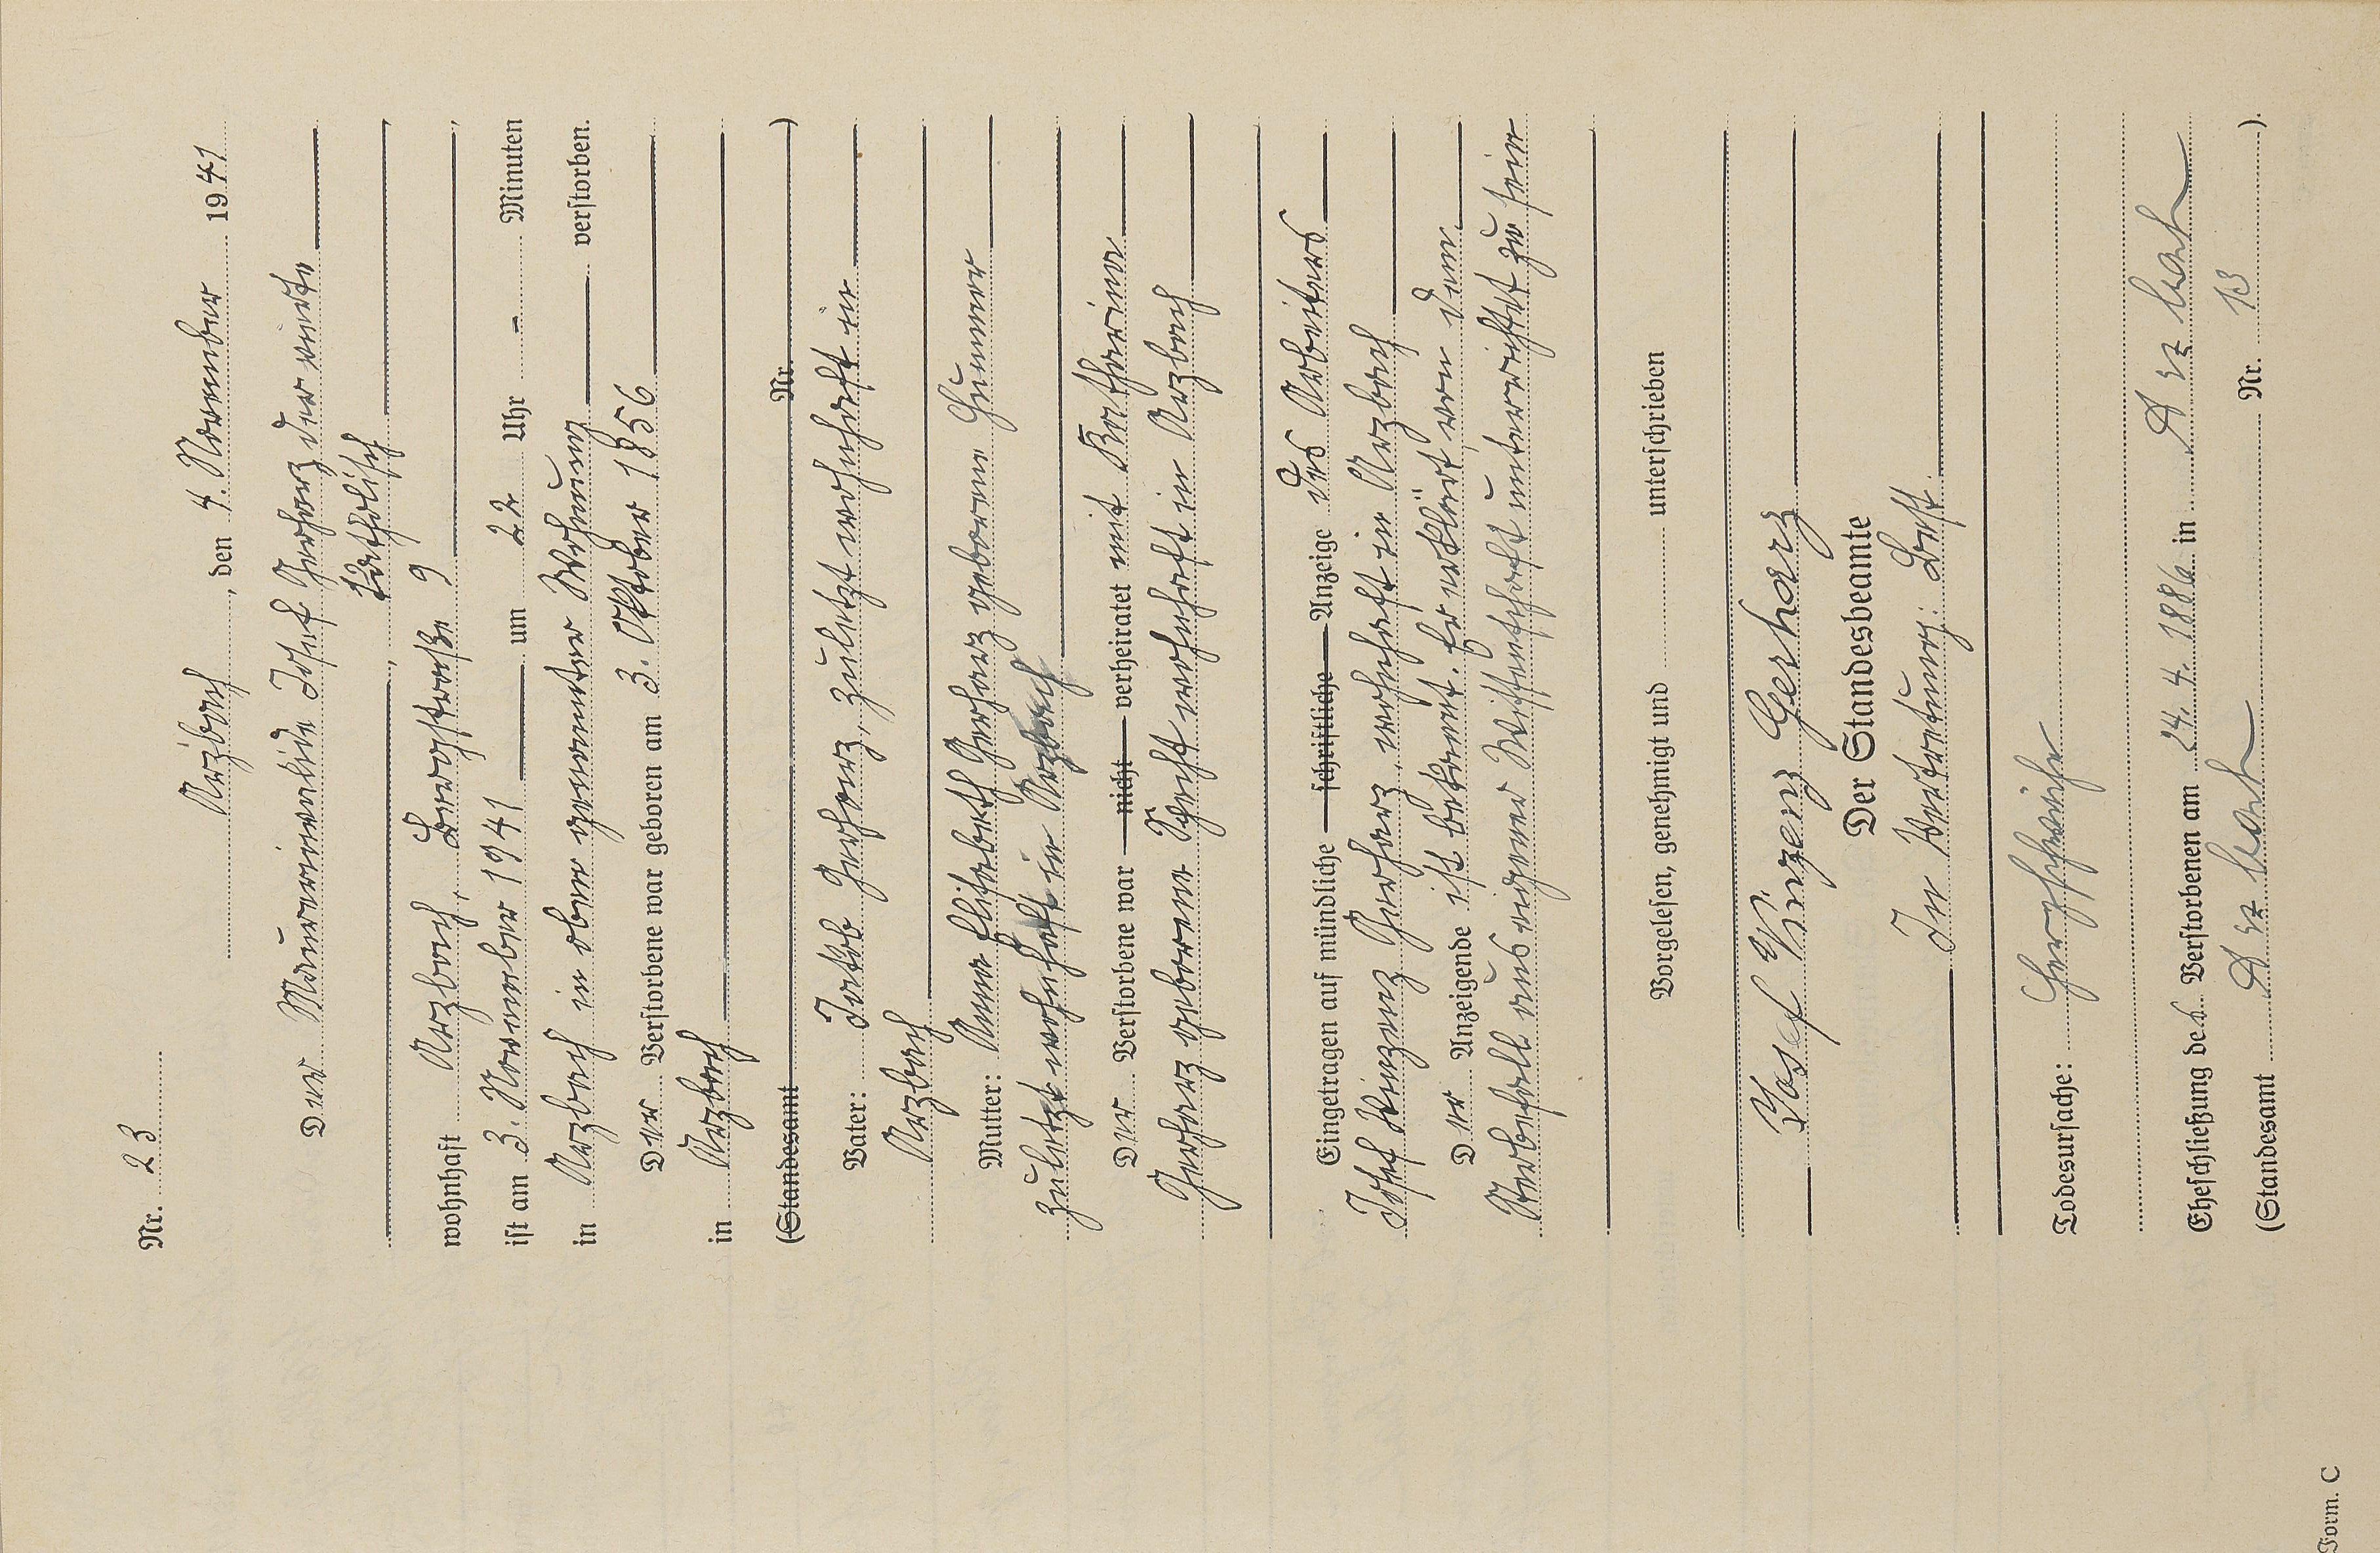 Nr. 23
Arzbach, den 4. November 1941
Der Maurerinvalide Josef Gerharz der vierte
katholisch,
wohnhaft Arzbach, Bergstraße 9,
ist am 3. November 1941 um 22 Uhr - Minuten
in Arzbach in oben genannter Wohnung verstorben.
Der Verstorbene war geboren am 3. Oktober 1856
in Arzbach
(Standesamt Nr. )
Vater: Jakob Gerharz, zuletzt wohnhaft in
Arzbach
Mutter: Anna Elisabeth Gerharz geborene
zuletzt wohnhaft in Arzbach
Der Verstorbene war nicht verheiratet mit Katharina
Gerharz geborene Specht wohnhaft in Arzbach
Eingetragen auf mündliche schriftliche Anzeige des Arbeiters
Josef Vinzenz Gerharz, wohnhaft in Arzbach
Der Anzeigende ist bekannt. Er erklärt, von dem
Sterbefall aus eigener Wissenschaft unterrichtet zu sein
Vorgelesen, genehmigt und unterschrieben
Josef Vinzenz Gerharz
Der Standesbeamte
In Vertretung:
Todesursache: Herzschwäche
Eheschließung des Verstorbenen am 24. 4. 1886 in Arzbach
(Standesamt Arzbach Nr. 13 ).
Form. C